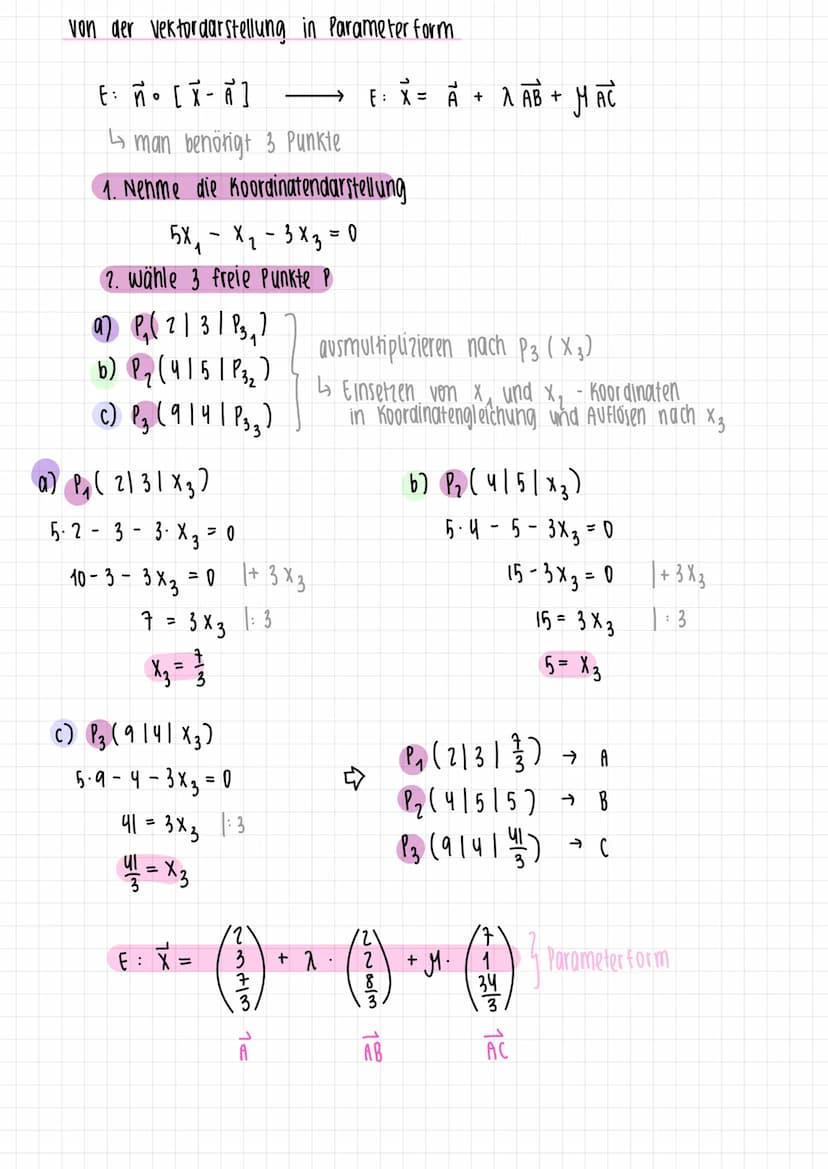 Von der Vektordarstellung in Parameterform
E: n⃗ ∘ [x⃗ - A⃗] ⟶ E: x⃗ = A⃗ + λ AB⃗ + μ AC⃗
↳ man benötigt 3 Punkte
1. Nehme die Koordinatendarstellung
5x₁ - x₂ - 3x₃ = 0
2. Wähle 3 freie Punkte P
a) P₁(2|3|P₃₁)
b) P₂(4|5|P₃₂)
c) P₃(9|4|P₃₃)
ausmultiplizieren nach P₃(x₃)
↳ Einsetzen von x₁ und x₂ - Koordinaten
in Koordinatengleichung und Auflösen nach x₃
a) P₁(2|3|x₃)
5·2 - 3 - 3·x₃ = 0
10 - 3 - 3x₃ = 0 |+ 3x₃
7 = 3x₃ |:3
x₃ = 7/3
b) P₂(4|5|x₃)
5·4 - 5 - 3x₃ = 0
15 - 3x₃ = 0 |+ 3x₃
15 = 3x₃ |:3
5 = x₃
c) P₃(9|4|x₃)
5·9 - 4 - 3x₃ = 0
41 = 3x₃ |:3
41/3 = x₃
⇨ P₁(2|3|7/3) → A
P₂(4|5|5) → B
P₃(9|4|41/3) → C
E: x⃗ = (2 3 7/3) + λ · (2 2 8/3) + μ · (7 1 34/3) } Parameterform
A⃗ AB⃗ AC⃗